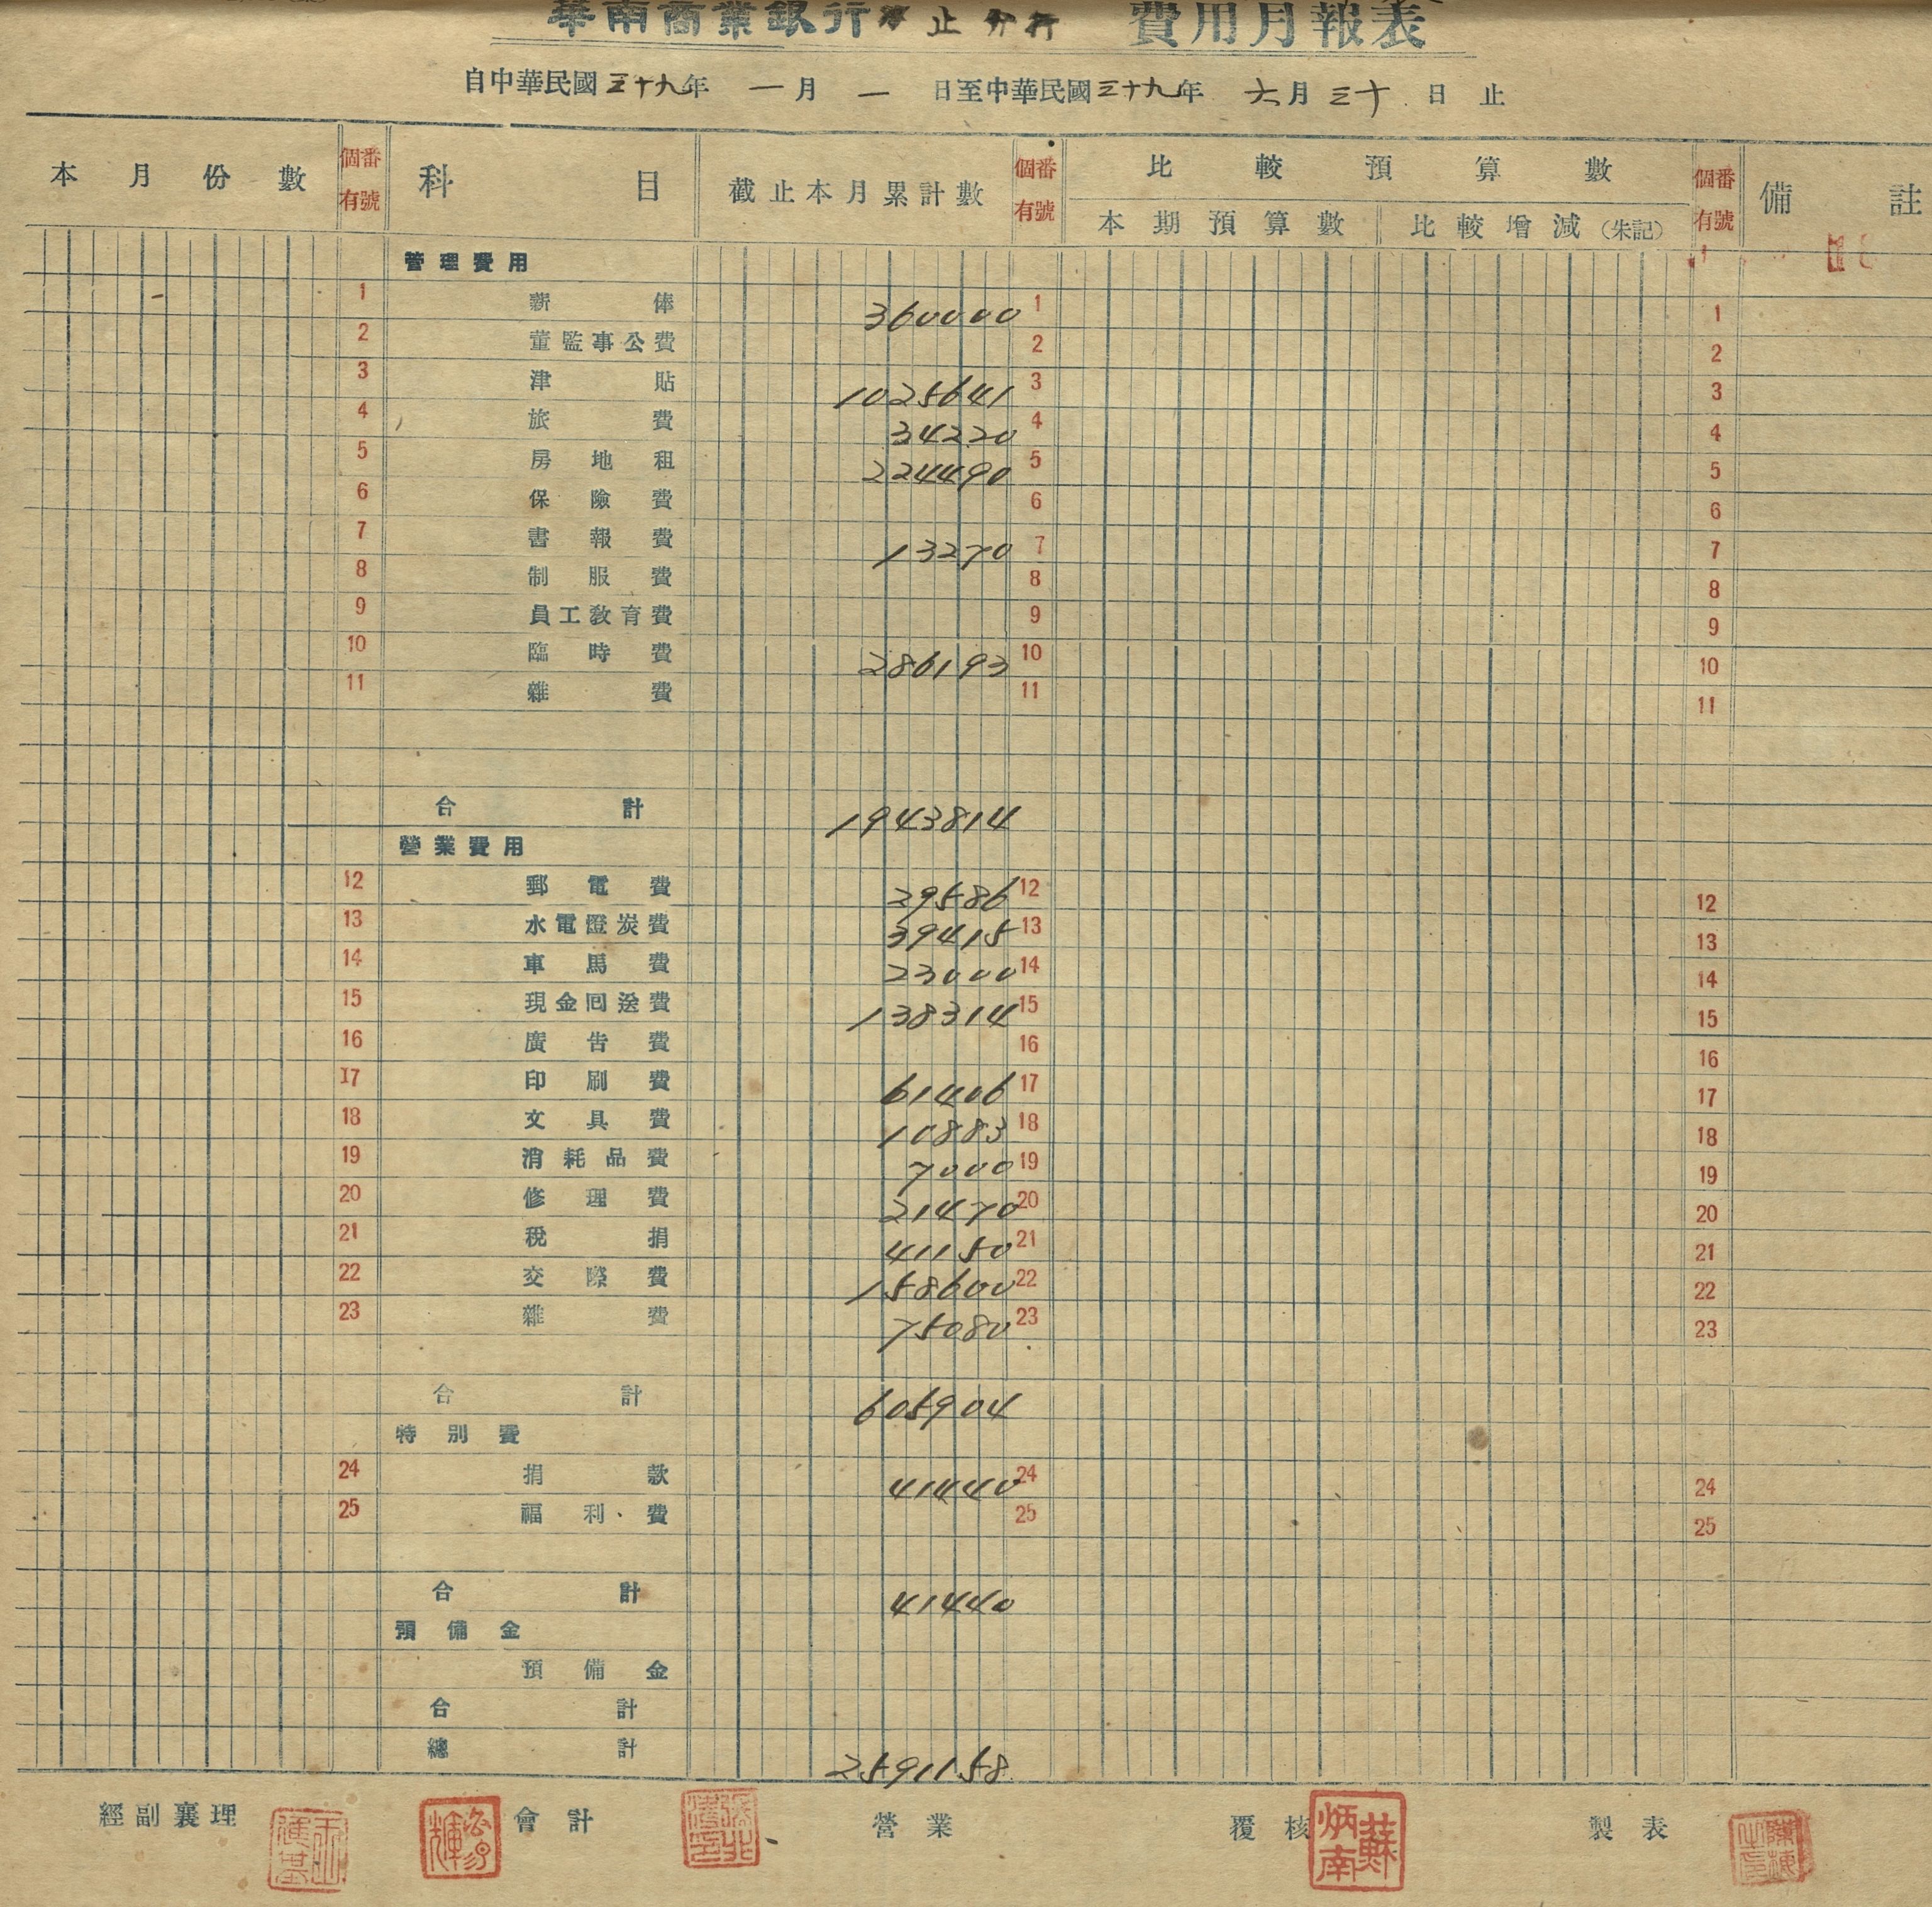 華南商業銀行汐止分行 費用月報表
自中華民國三十九年 一月 一 日至中華民國三十九年 六月三十日止
本月份數 個有番號 科目 截止本月累計數 個有番號 比較預算數 個有番號 備註
本期預算數 比較增減(朱記)
管理費用
1 薪俸 360000 1 1
2 董監事公費 2 2
3 津貼 1025641 3 3
4 旅費 34220 4 4
5 房地租 224490 5 5
6 保險費 6 6
7 書報費 13270 7 7
8 制服費 8 8
9 員工教育費 9 9
10 臨時費 286193 10 10
11 雜費 11 11
合計 1943814
營業費用
12 郵電費 29586 12 12
13 水電燈炭費 39415 13 13
14 車馬費 23000 14 14
15 現金回送費 138314 15 15
16 廣告費 16 16
17 印刷費 61406 17 17
18 文具費 10883 18 18
19 消耗品費 7000 19 19
20 修理費 21470 20 20
21 稅捐 41150 21 21
22 交際費 158600 22 22
23 雜費 75080 23 23
合計 605904
特別費
24 捐款 41440 24 24
25 福利費 25 25
合計 41440
預備金
預備金
合計
總計 2591158
經副襄理 會計 營業 覆核 蘇炳南 製表